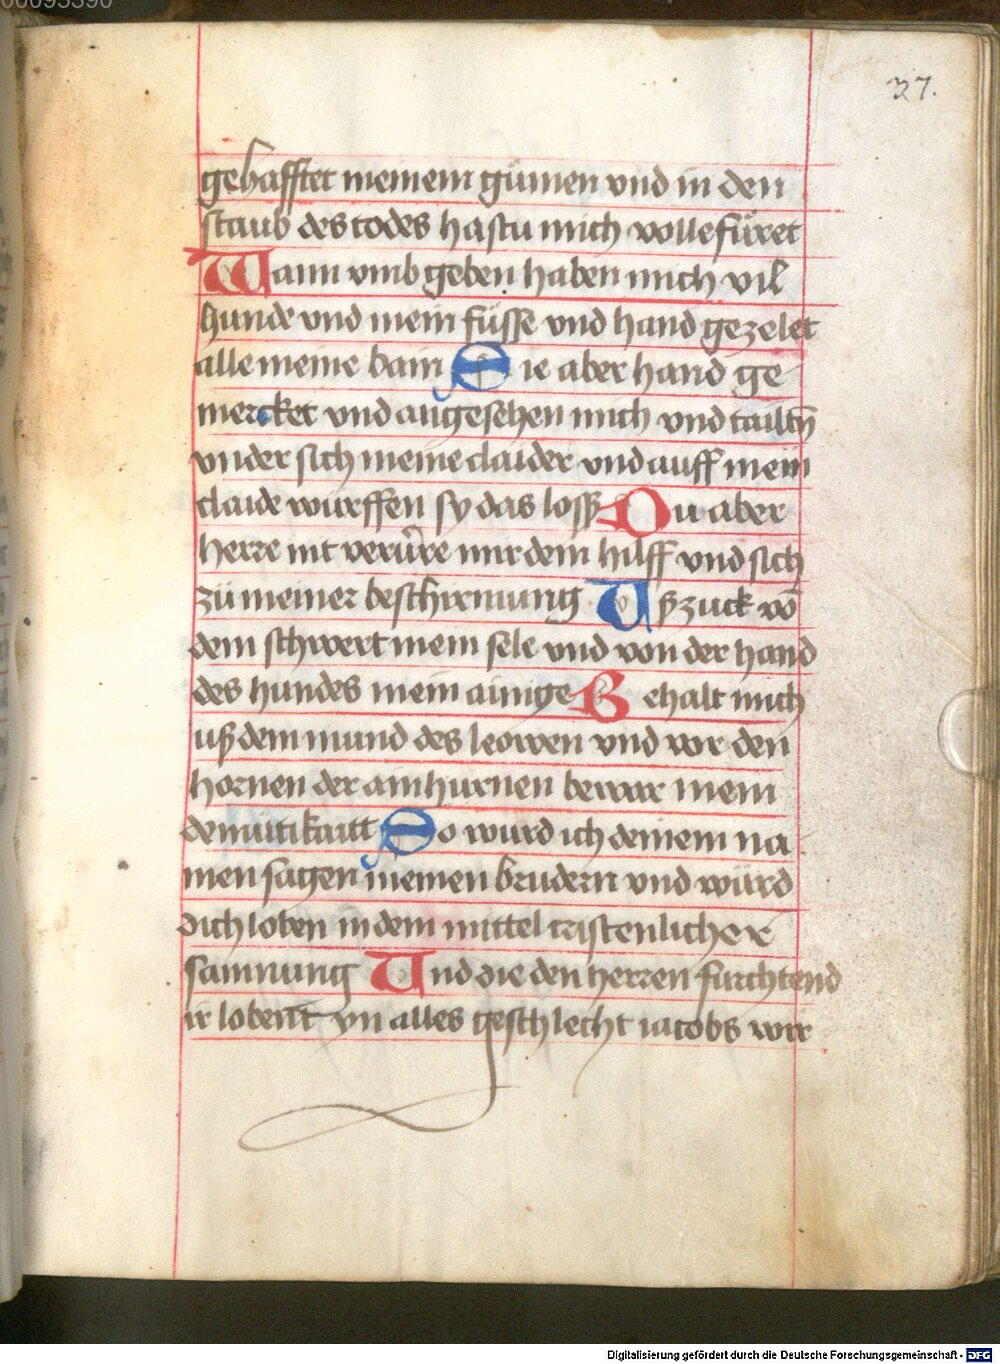 00095390
37.
gehafftet meinem gůmen vnd in den
staub des todes hastu mich vollefůret
Wann vmb geben haben mich vil
hunde vnd mein fůsse vnd hand gezelet
alle meine bain Sie aber hand ge
mercket vnd angesehen mich vnd tailtn̄
vnder sich meine claider vnd auff mein
claide wurffen sy das loss Du aber
herre nit verv̊re mir dein hilff vnd sich
zů meiner beschirmung Vßzuck vō
dem schwert mein sele vnd von der hand
des hundes mein ainige Behalt mich
uß dem mund des leowen vnd vor den
hornen der ainhurnen bewar mein
demutikaitt So wurd ich deinem na
men sagen meinen brudern vnd würd
dich loben in dem mittel cristenlicher
samnung Vnd die den herren furchtend
ir lobent yn alles geschlecht iacobs wir
Digitalisierung gefördert durch die Deutsche Forschungsgemeinschaft - DFG